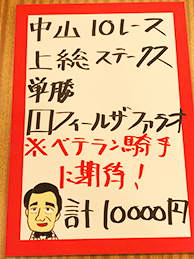 中山10レース
上総ステークス
単勝
11フィールザファラオ
※ベテラン騎手
に期待！
計10000円